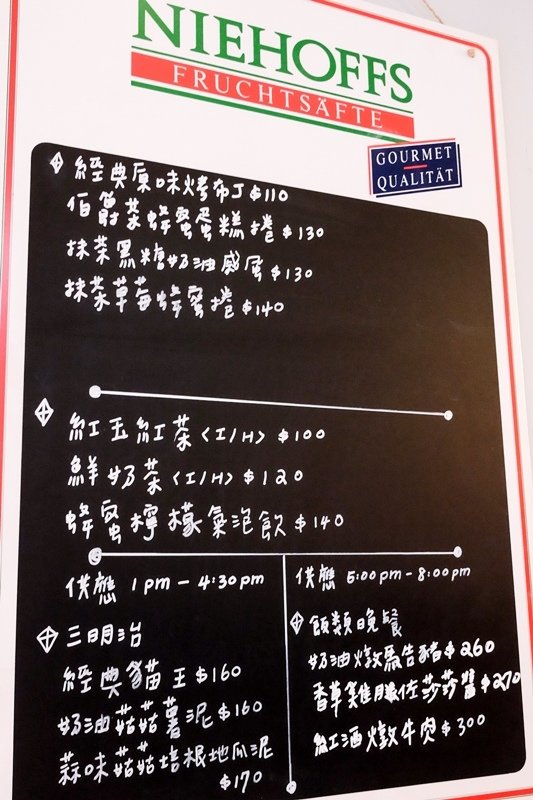 NIEHOFFS
FRUCHTSÄFTE
GOURMET
QUALITÄT
經典原味烤布丁$110
伯爵茶蜂蜜蛋糕捲 $130
抹茶黑糖奶油戚風 $130
抹茶草莓蜂蜜捲 $140
紅玉紅茶<I/H> $100
鮮奶茶<I/H> $120
蜂蜜檸檬氣泡飲 $140
供應 1pm-4:30pm
三明治
經典貓王 $160
奶油菇菇薯泥 $160
蒜味菇菇培根地瓜泥
$170
供應 5:00pm-8:00pm
飯類晚餐
奶油燉馬告豬$260
香草雞腿佐莎莎醬$270
紅酒燉牛肉$300